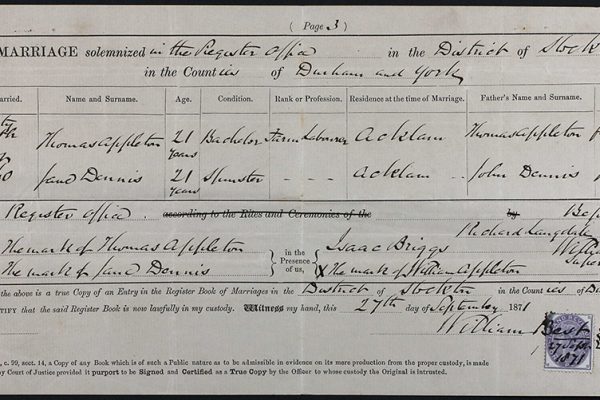 ( Page 3 )
MARRIAGE solemnized in the Register Office in the District of Stock
in the Counties of Durham and York
arried. Name and Surname. Age. Condition. Rank or Profession. Residence at the time of Marriage. Father's Name and Surname.
Thomas Appleton 21 years Bachelor Farm Labourer Acklam Thomas Appleton
Jane Dennis 21 years Spinster - - - Acklam .. John Dennis
Register Office according to the Rites and Ceremonies of the by
The mark of Thomas Appleton in the Presence of us, Isaac Briggs Richard Langdale
The mark of Jane Dennis X The mark of William Appleton
the above is a true Copy of an Entry in the Register Book of Marriages in the District of Stockton in the Counties of D
TIFY that the said Register Book is now lawfully in my custody. Witness my hand, this 27th day of September 1871
William Best
27 Sep. 1871
, c. 99, sect. 14, a Copy of any Book which is of such a Public nature as to be admissible in evidence on its mere production from the proper custody, is made
y Court of Justice provided it purport to be Signed and Certified as a True Copy by the Officer to whose custody the Original is intrusted.